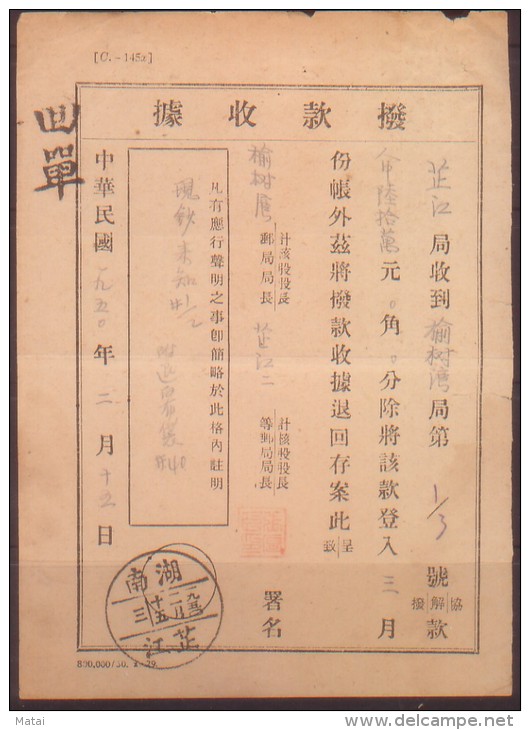 [C.-145z]
據收款撥
回單
芷江局收到榆树湾局第1/3號協解撥款
陸拾萬元0角0分除將該款登入三月
份帳外茲將撥款收據退回存案此呈致
榆树湾郵局局長計核股股長
芷江二等郵局局長計核股股長
署名
凡有應行聲明之事卽簡略於此格內註明
現鈔未知
中華民國一九五〇年二月十五日
湖南
一九五〇
二月
十五
三
芷江
Matai
delcampe.net